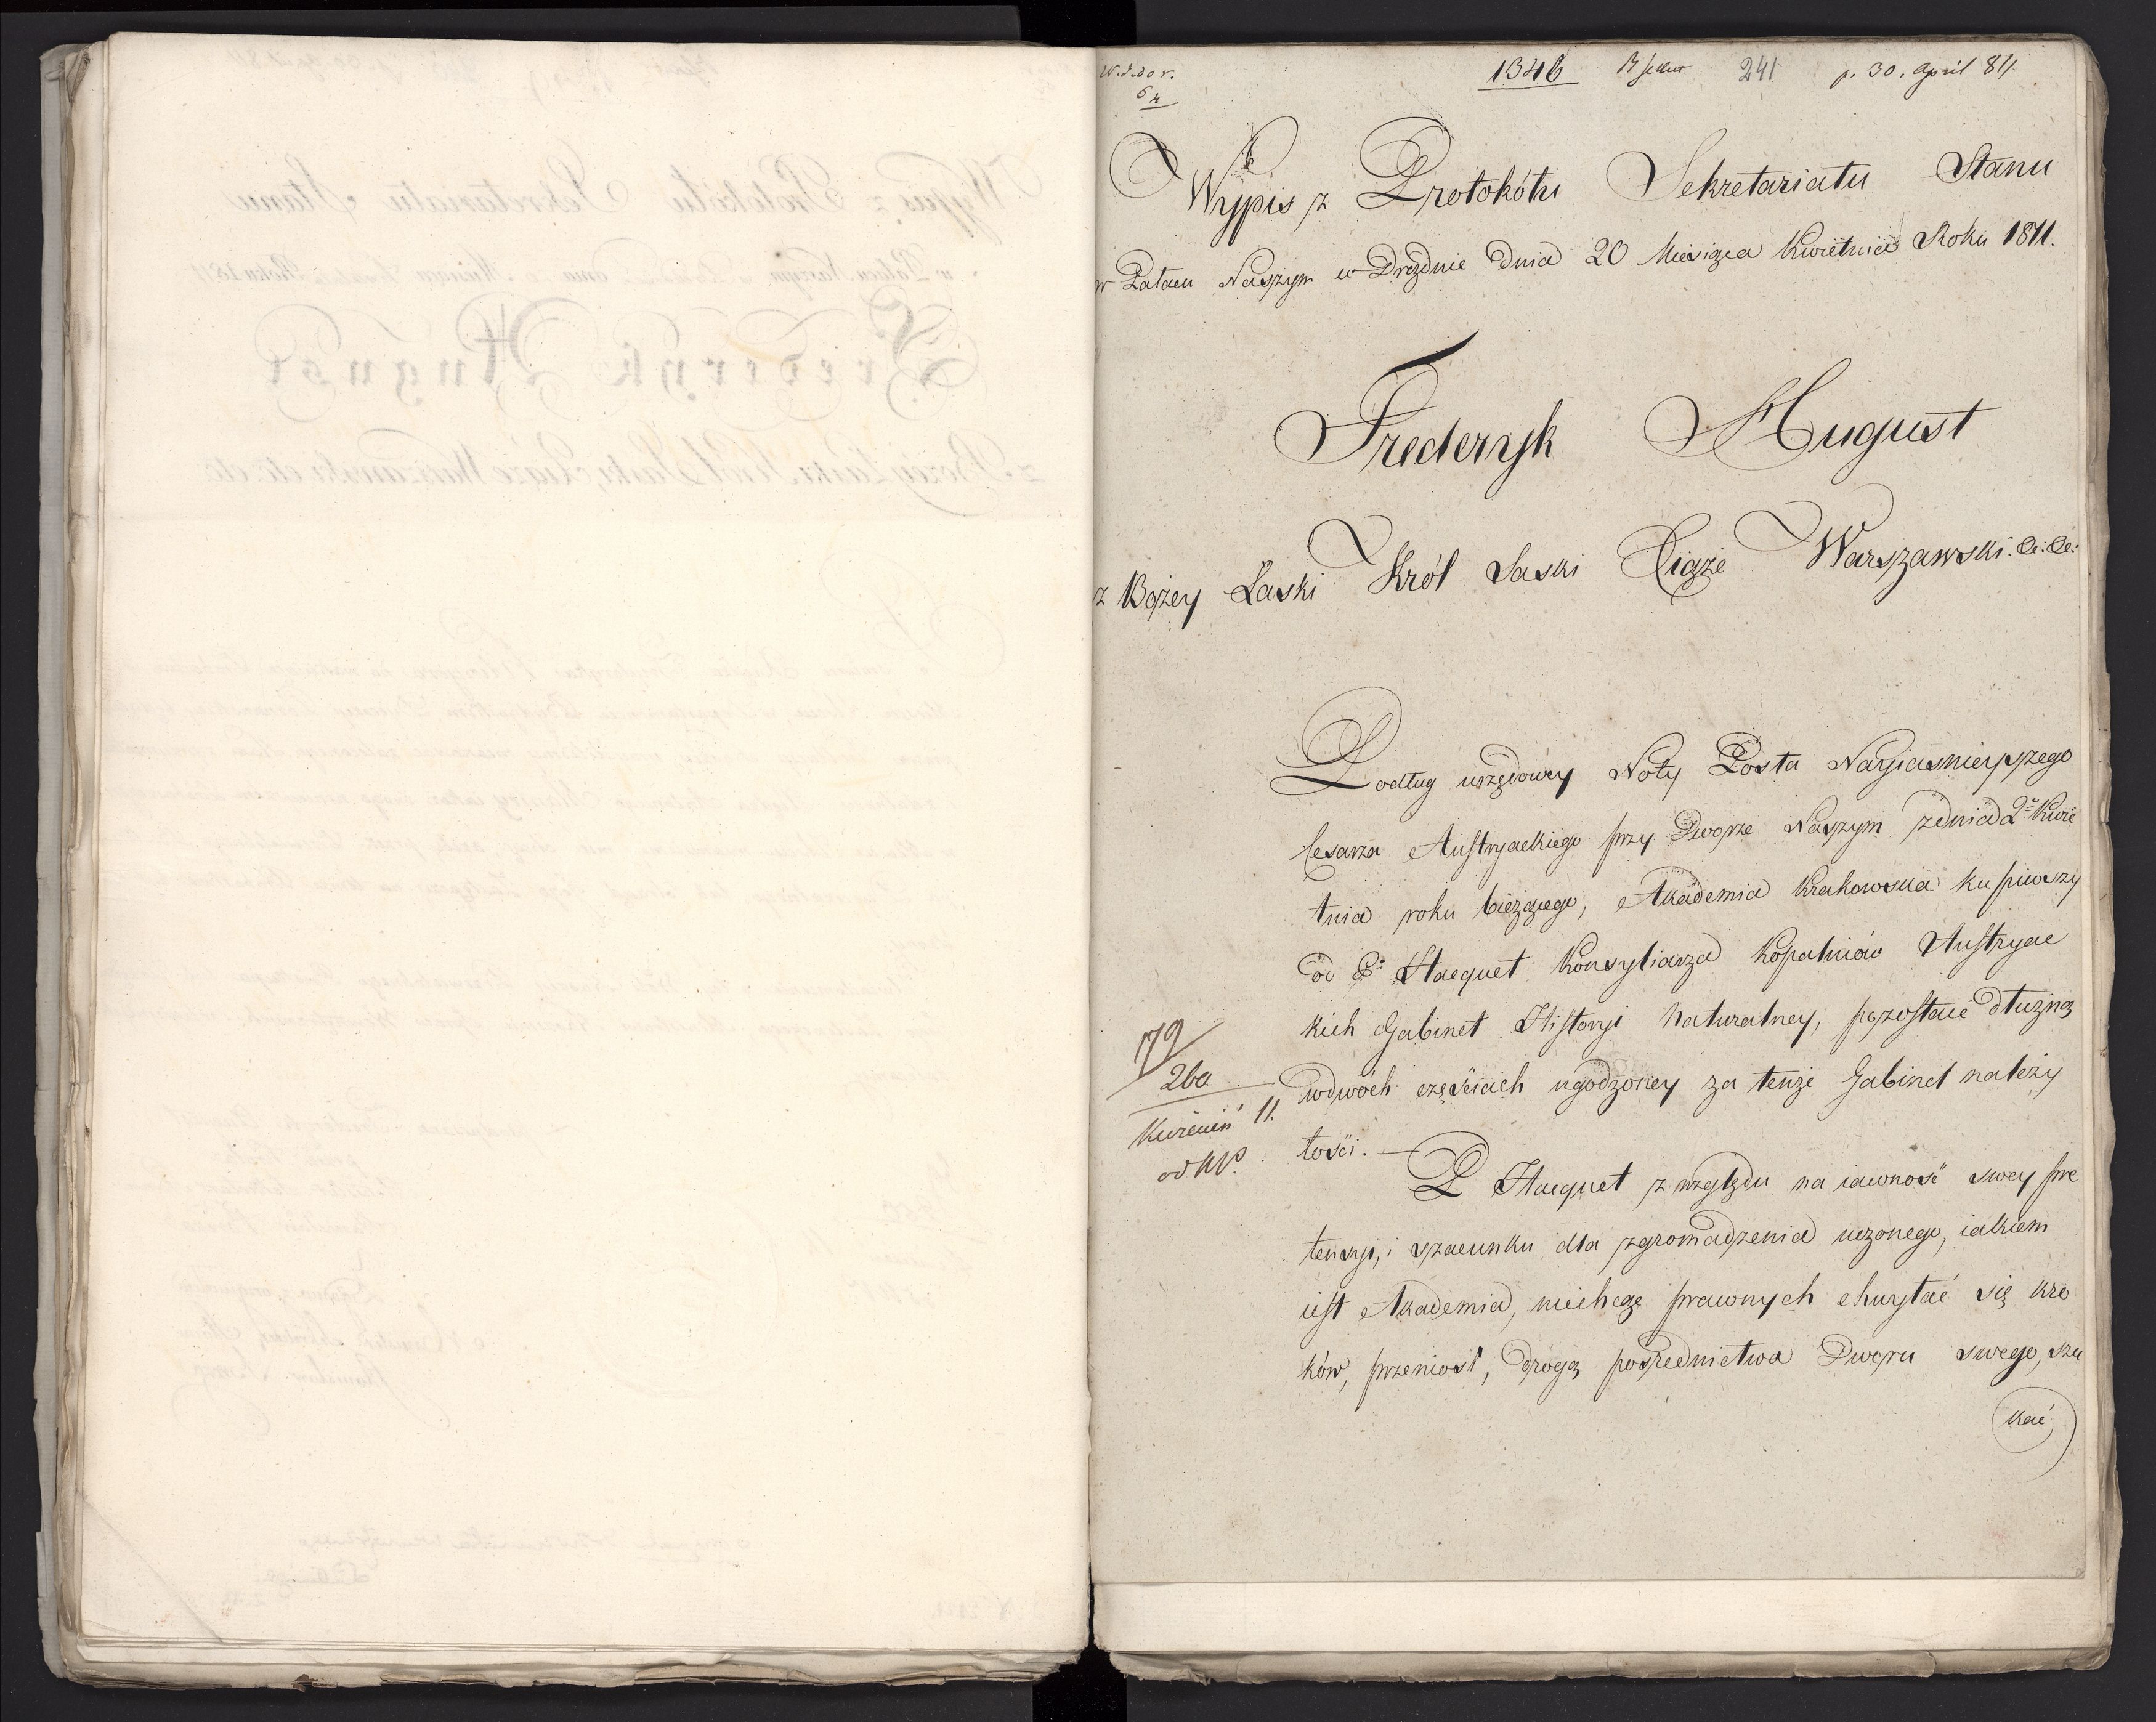 1346 241 p. 30. April 811.
Wypis z Protokółu Sekretariatu Stanu
w Pałacu Naszym w Dreźnie dnia 20 Miesiąca Kwietnia Roku 1811.
Frederyk August
z Bożey Łaski Król Saski Xiąże Warszawski. &: &:
Podług urzędowey Noty Posła Nayiaśnieyszego
Cesarza Austryackiego przy Dworze Naszym z dnia 2º Kwie
tnia roku bieżącego, Akademia Krakowska kupiwszy
od P. Hacquet Konsyliarza Kopalniów Austryac
kich Gabinet Historyi Naturalney, pozostaie dłużną
w dwóch częściach ugodzoney za tenże Gabinet należy
tości. —
P Hacquet z względu na iawność swey pre
tensyi, i szacunku dla zgromadzenia uczonego, iakiem
iest Akademia, niechcąc prawnych chwytać się kro
ków, przeniosł, drogą pośrednictwa Dworu swego, szu
kać
179
260
Kwiecień 11.